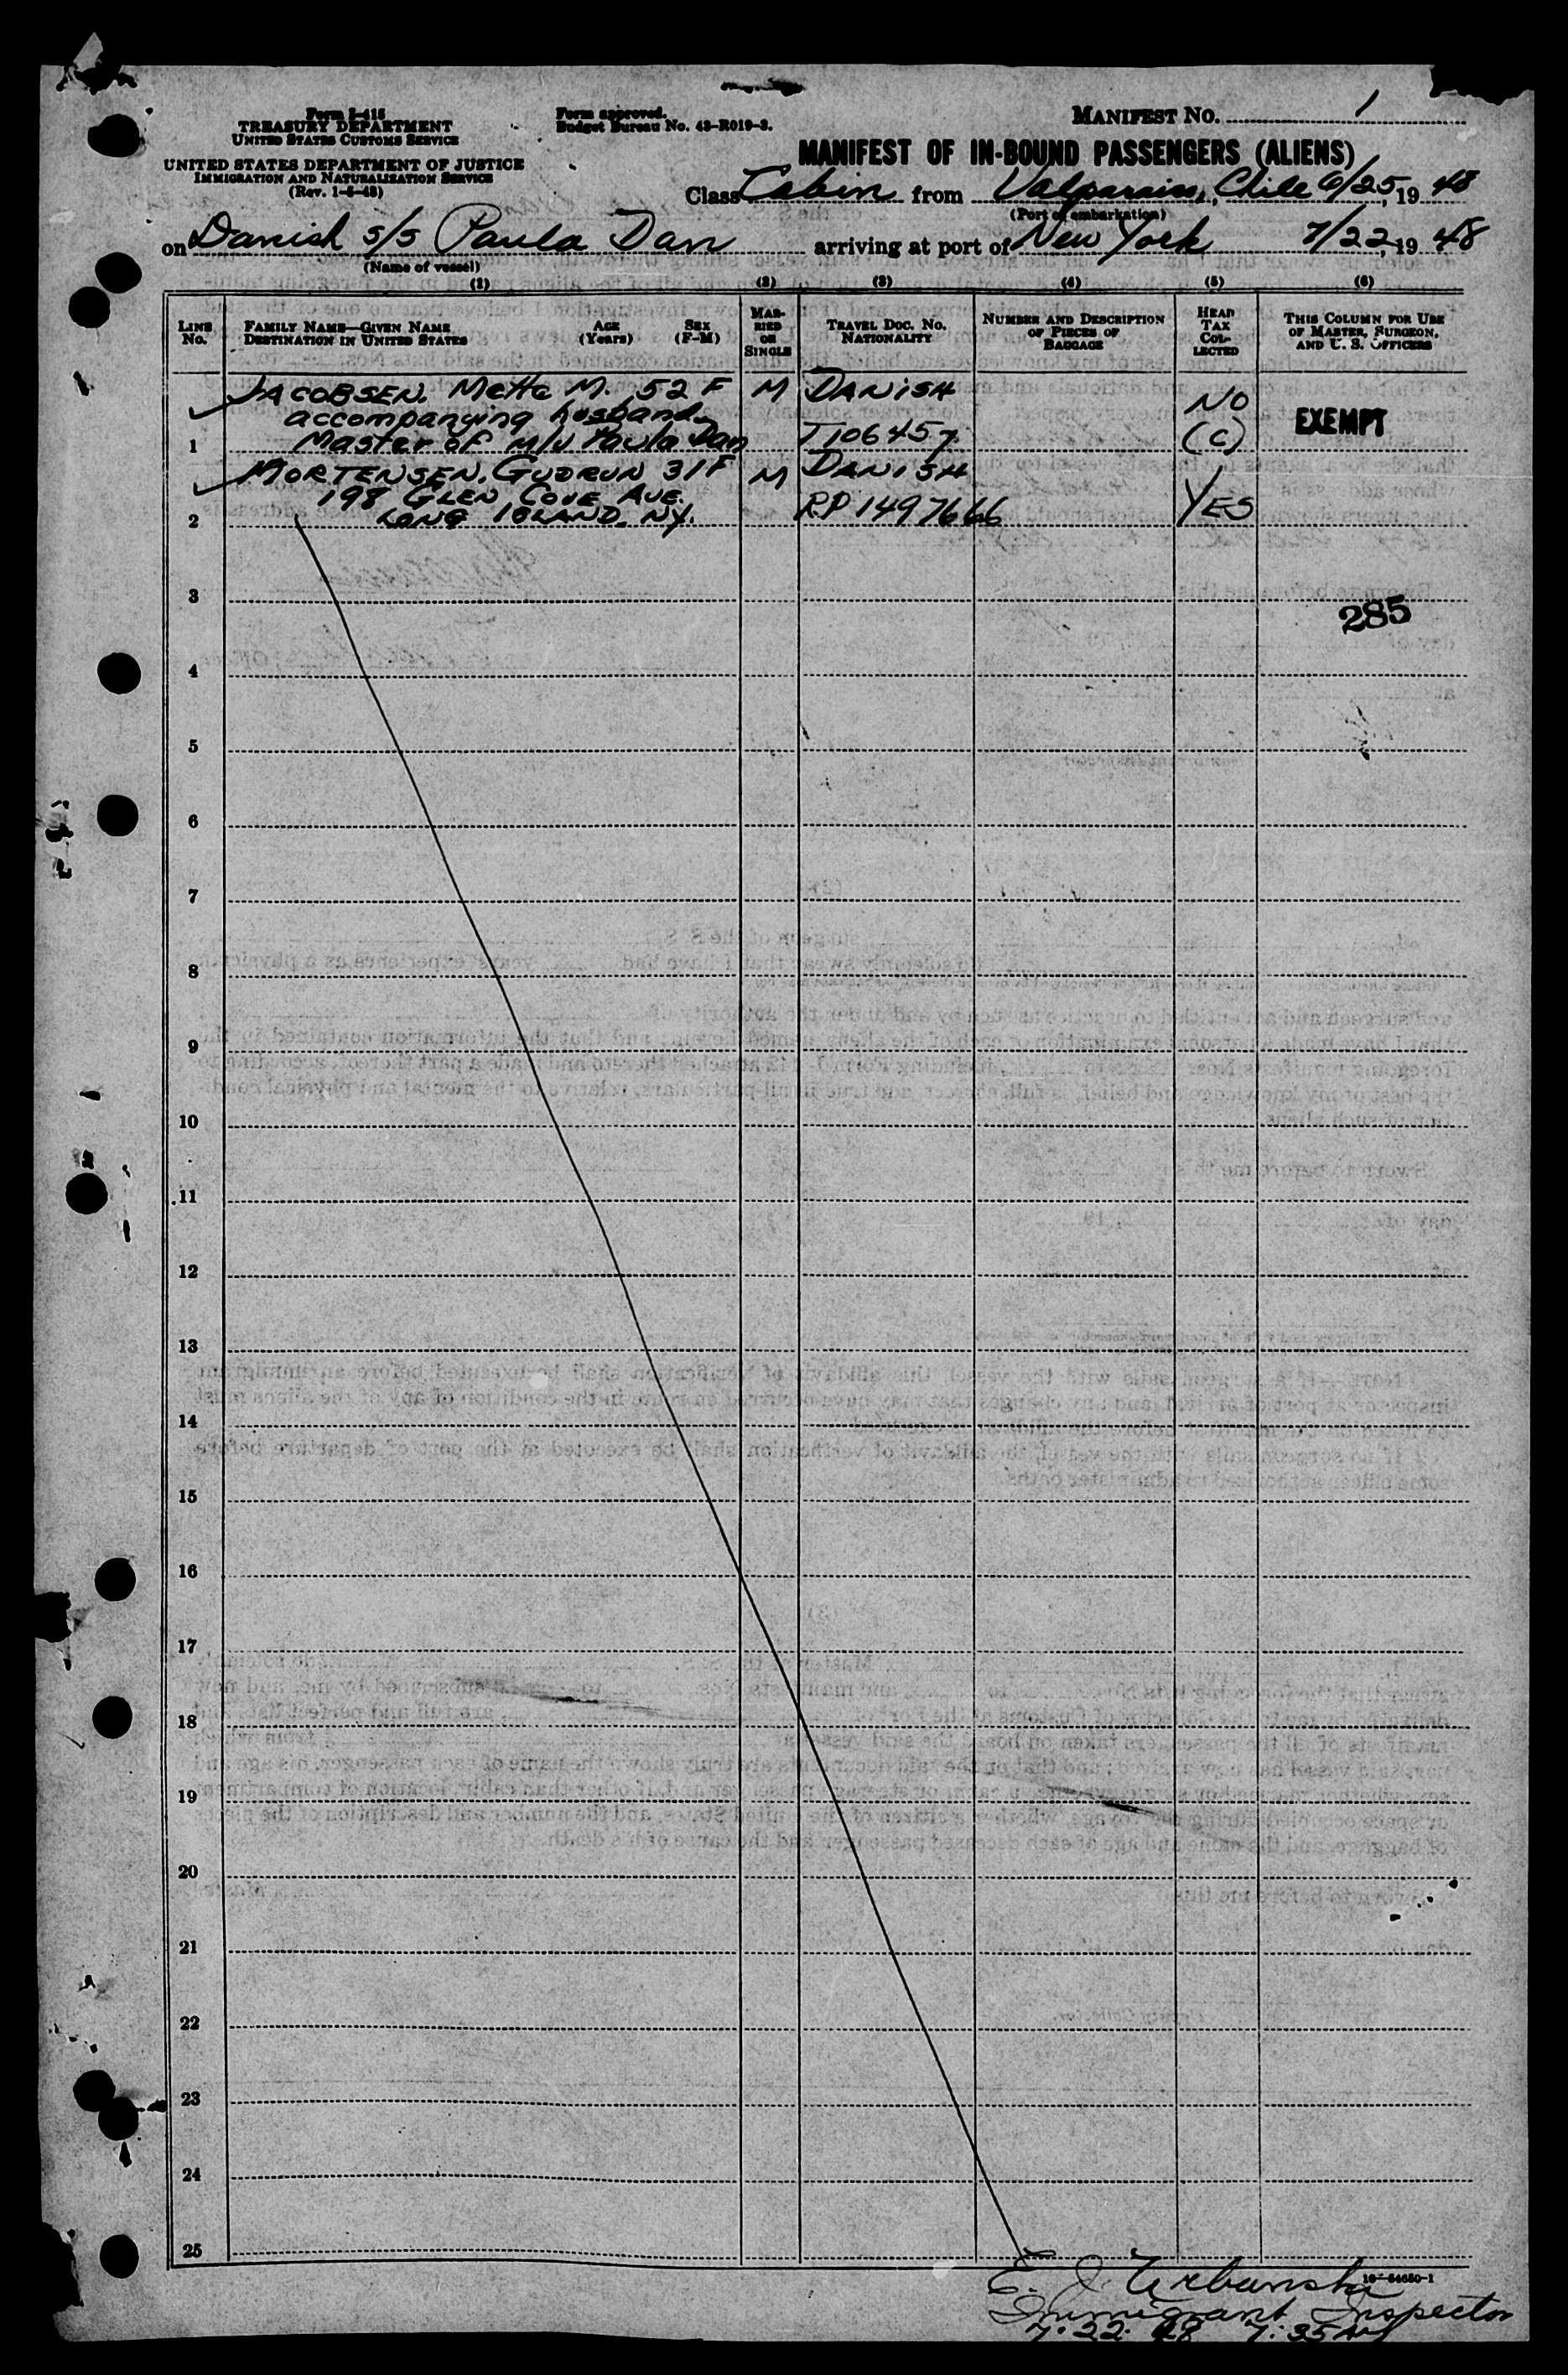 Form I-415
TREASURY DEPARTMENT
UNITED STATES CUSTOMS SERVICE
UNITED STATES DEPARTMENT OF JUSTICE
IMMIGRATION AND NATURALIZATION SERVICE
(Rev. 1-5-48)
Form approved.
Budget Bureau No. 43-R019-3.
MANIFEST NO. 1
MANIFEST OF IN-BOUND PASSENGERS (ALIENS)
Class Cabin from Valparaiso, Chile 6/25, 19 48
(Port of embarkation)
on Danish s/s Paula Dan arriving at port of New York 7/22, 19 48
(Name of vessel)
(1) (2) (3) (4) (5) (6)
LINE No.
FAMILY NAME—GIVEN NAME
DESTINATION IN UNITED STATES
AGE (Years)
SEX (F-M)
MARRIED OR SINGLE
TRAVEL DOC. NO.
NATIONALITY
NUMBER AND DESCRIPTION OF PIECES OF BAGGAGE
HEAD TAX COLLECTED
THIS COLUMN FOR USE OF MASTER, SURGEON, AND U. S. OFFICERS
JACOBSEN. Mette M. 52 F M DANISH
accompanying husband NO EXEMPT
1 Master of M/V Paula Dan T106457 (C)
MORTENSEN. GUDRUN 31 F M DANISH
198 GLEN COVE AVE. RP 1497666 YES
2 LONG ISLAND. NY.
3
285
4
5
6
7
8
9
10
11
12
13
14
15
16
17
18
19
20
21
22
23
24
25
E. J. Urbanski
16—54650-1
Immigrant Inspector
7. 22. 48 7:35 AM